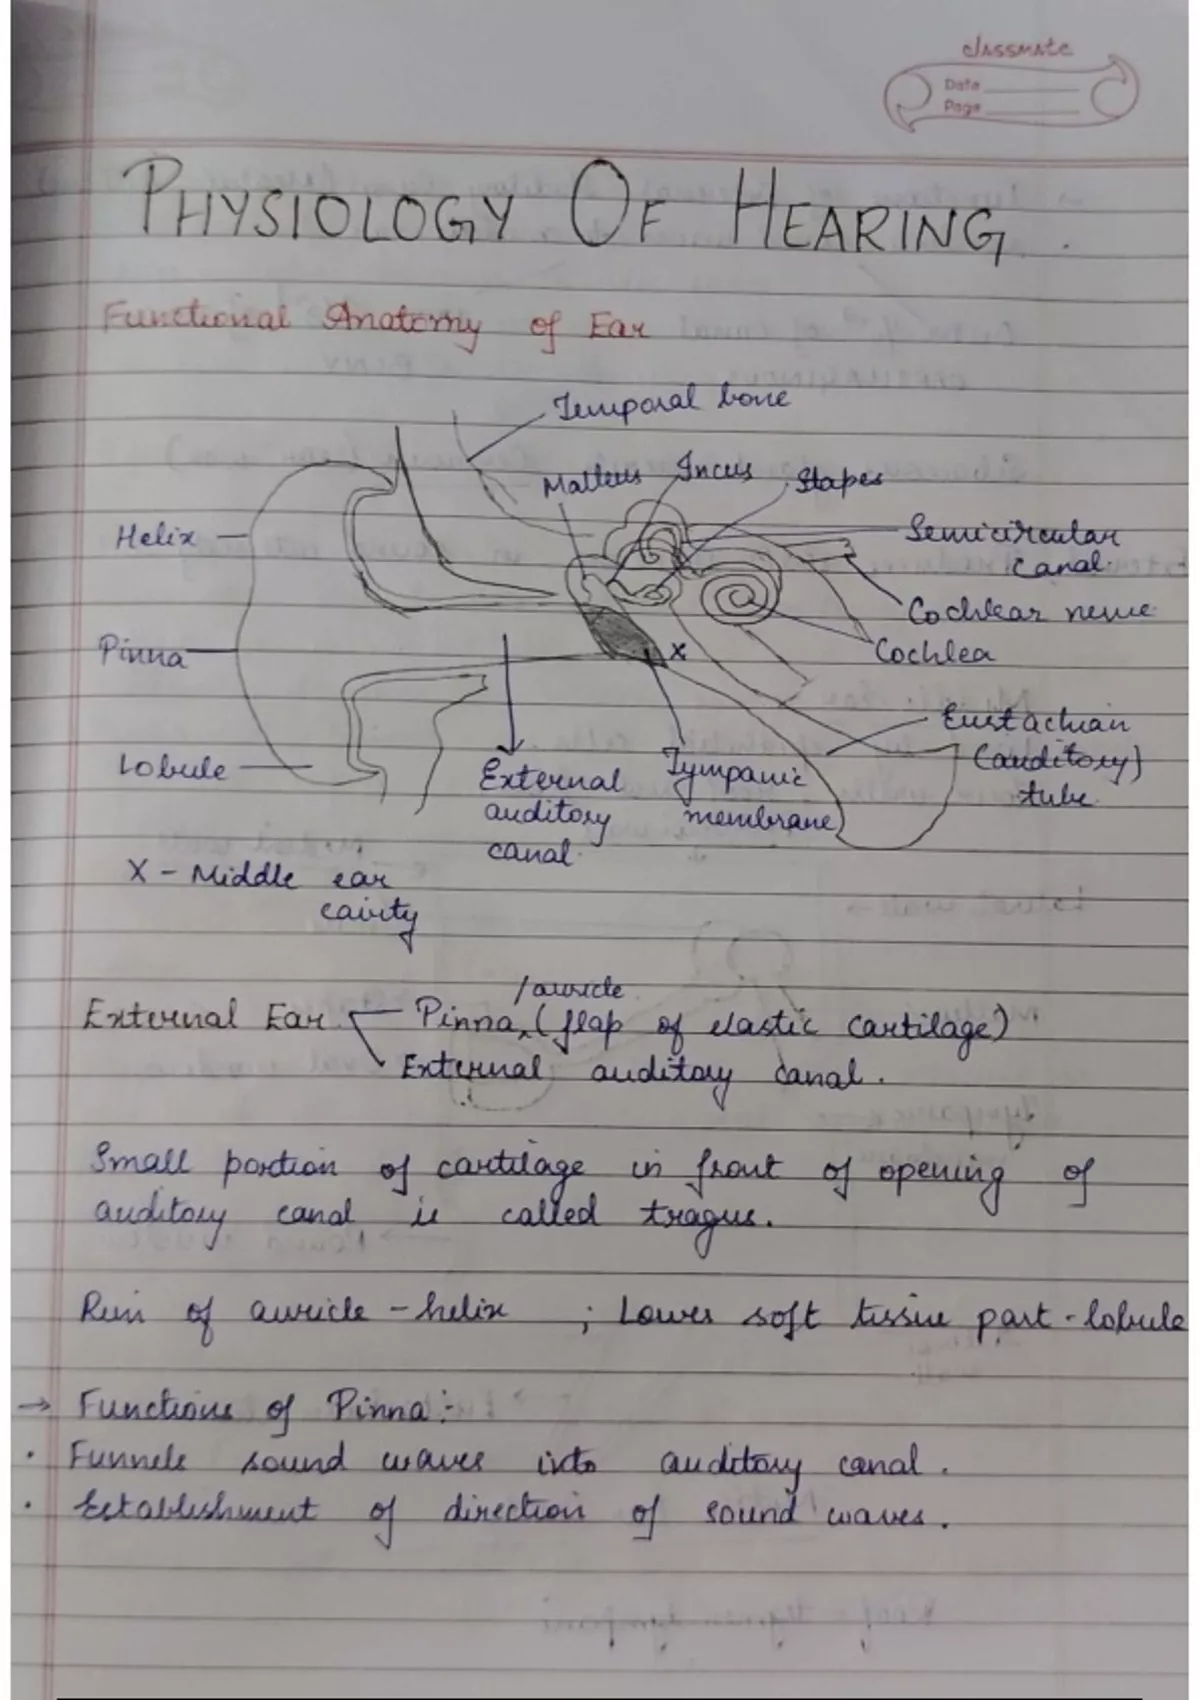 classmate
Date
Page
PHYSIOLOGY OF HEARING.
Functional Anatomy of Ear
Temporal bone
Malleus Incus Stapes
Helix
Semicircular
canal.
Cochlear nerve
Pinna
Cochlea
Eustachian
(auditory)
tube.
Lobule
External
auditory
canal.
Tympanic
membrane
X - Middle ear
cavity
X
/auricle
External Ear Pinna (flap of elastic cartilage)
External auditory canal.
Small portion of cartilage in front of opening of
auditory canal is called tragus.
Rim of auricle - helix ; Lower soft tissue part - lobule
→ Functions of Pinna :-
. Funnels sound waves into auditory canal.
. Establishment of direction of sound waves.